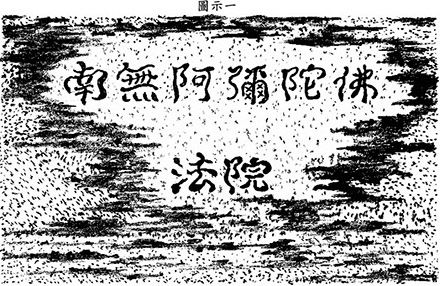 圖示一
南無阿彌陀佛
法院